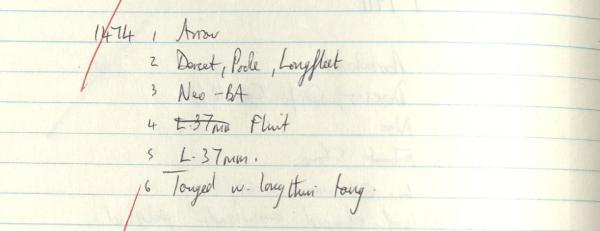 1474 1 Arrow
2 Dorset, Poole, Longfleet
3 Neo-BA
4 L.37mm Flint
5 L.37mm.
6 Tanged w. long thin tang.